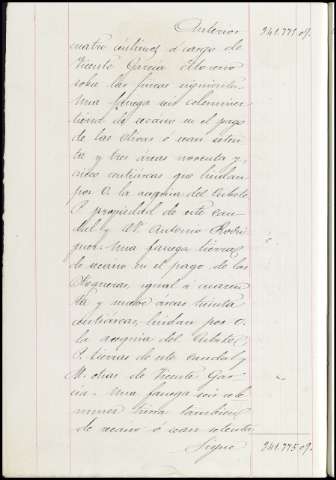 Anterior 241.775.09.
cuatro céntimos á cargo de
Vicente García Moreno
sobre las fincas siguientes.
Una fanega seis celemines
tierra de secano en el pago
de las Eras ó sean seten-
ta y tres áreas noventa y
cinco centiáreas que lindan
por O. la acequia del Cubete
P. propiedad de este cau-
dal y N. Antonio Rodri-
guez. Una fanega tierra
de secano en el pago de las
Nogueras, igual á cuaren-
ta y nueve áreas treinta
centiáreas, lindan por O.
la acequia del Cubete,
P. tierras de este caudal y
M. otras de Vicente Gar-
cía. Una fanega seis cele-
mines tierra tambien
de secano ó sean setenta
Sigue 241.775.09.